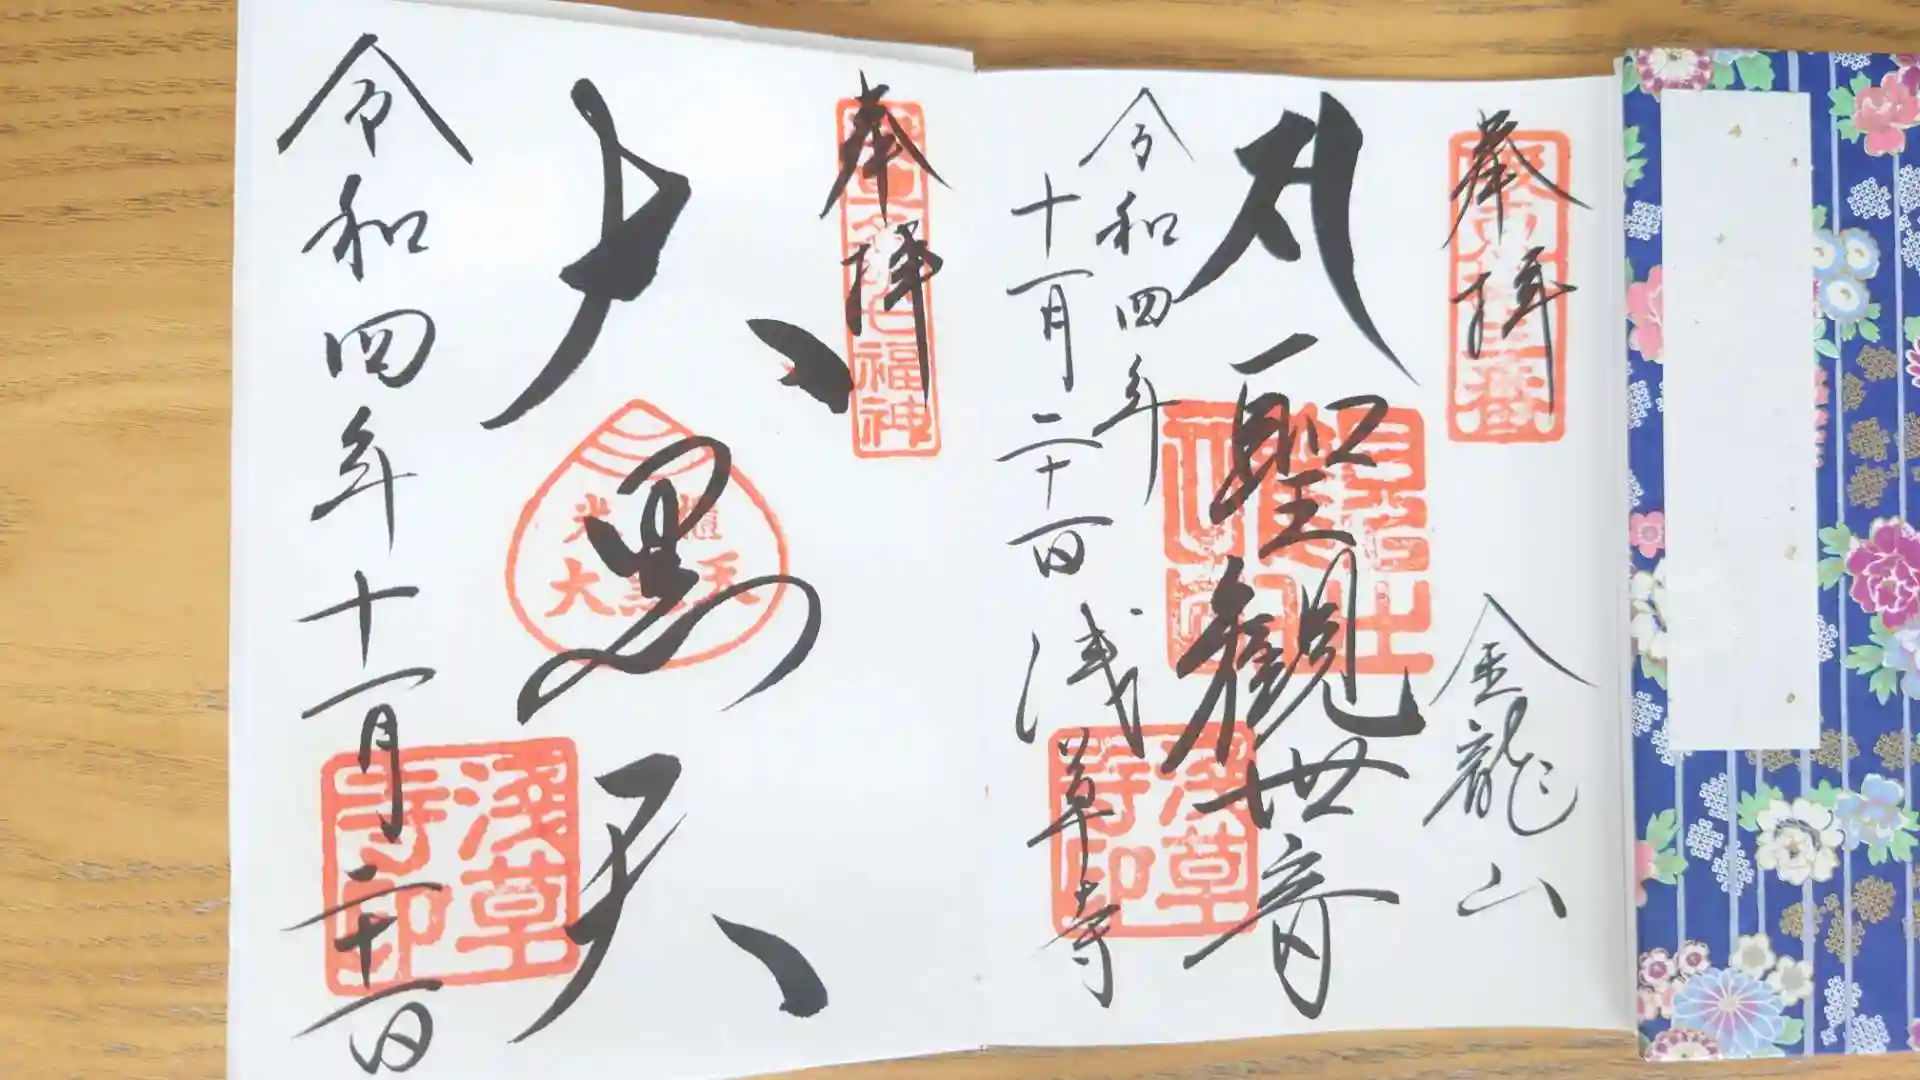 奉拝
金龍山
聖観世音
令和四年
十一月二十日
浅草寺
浅草寺印
奉拝
七福神
大黒天
大黒天
令和四年十一月二十日
浅草寺印